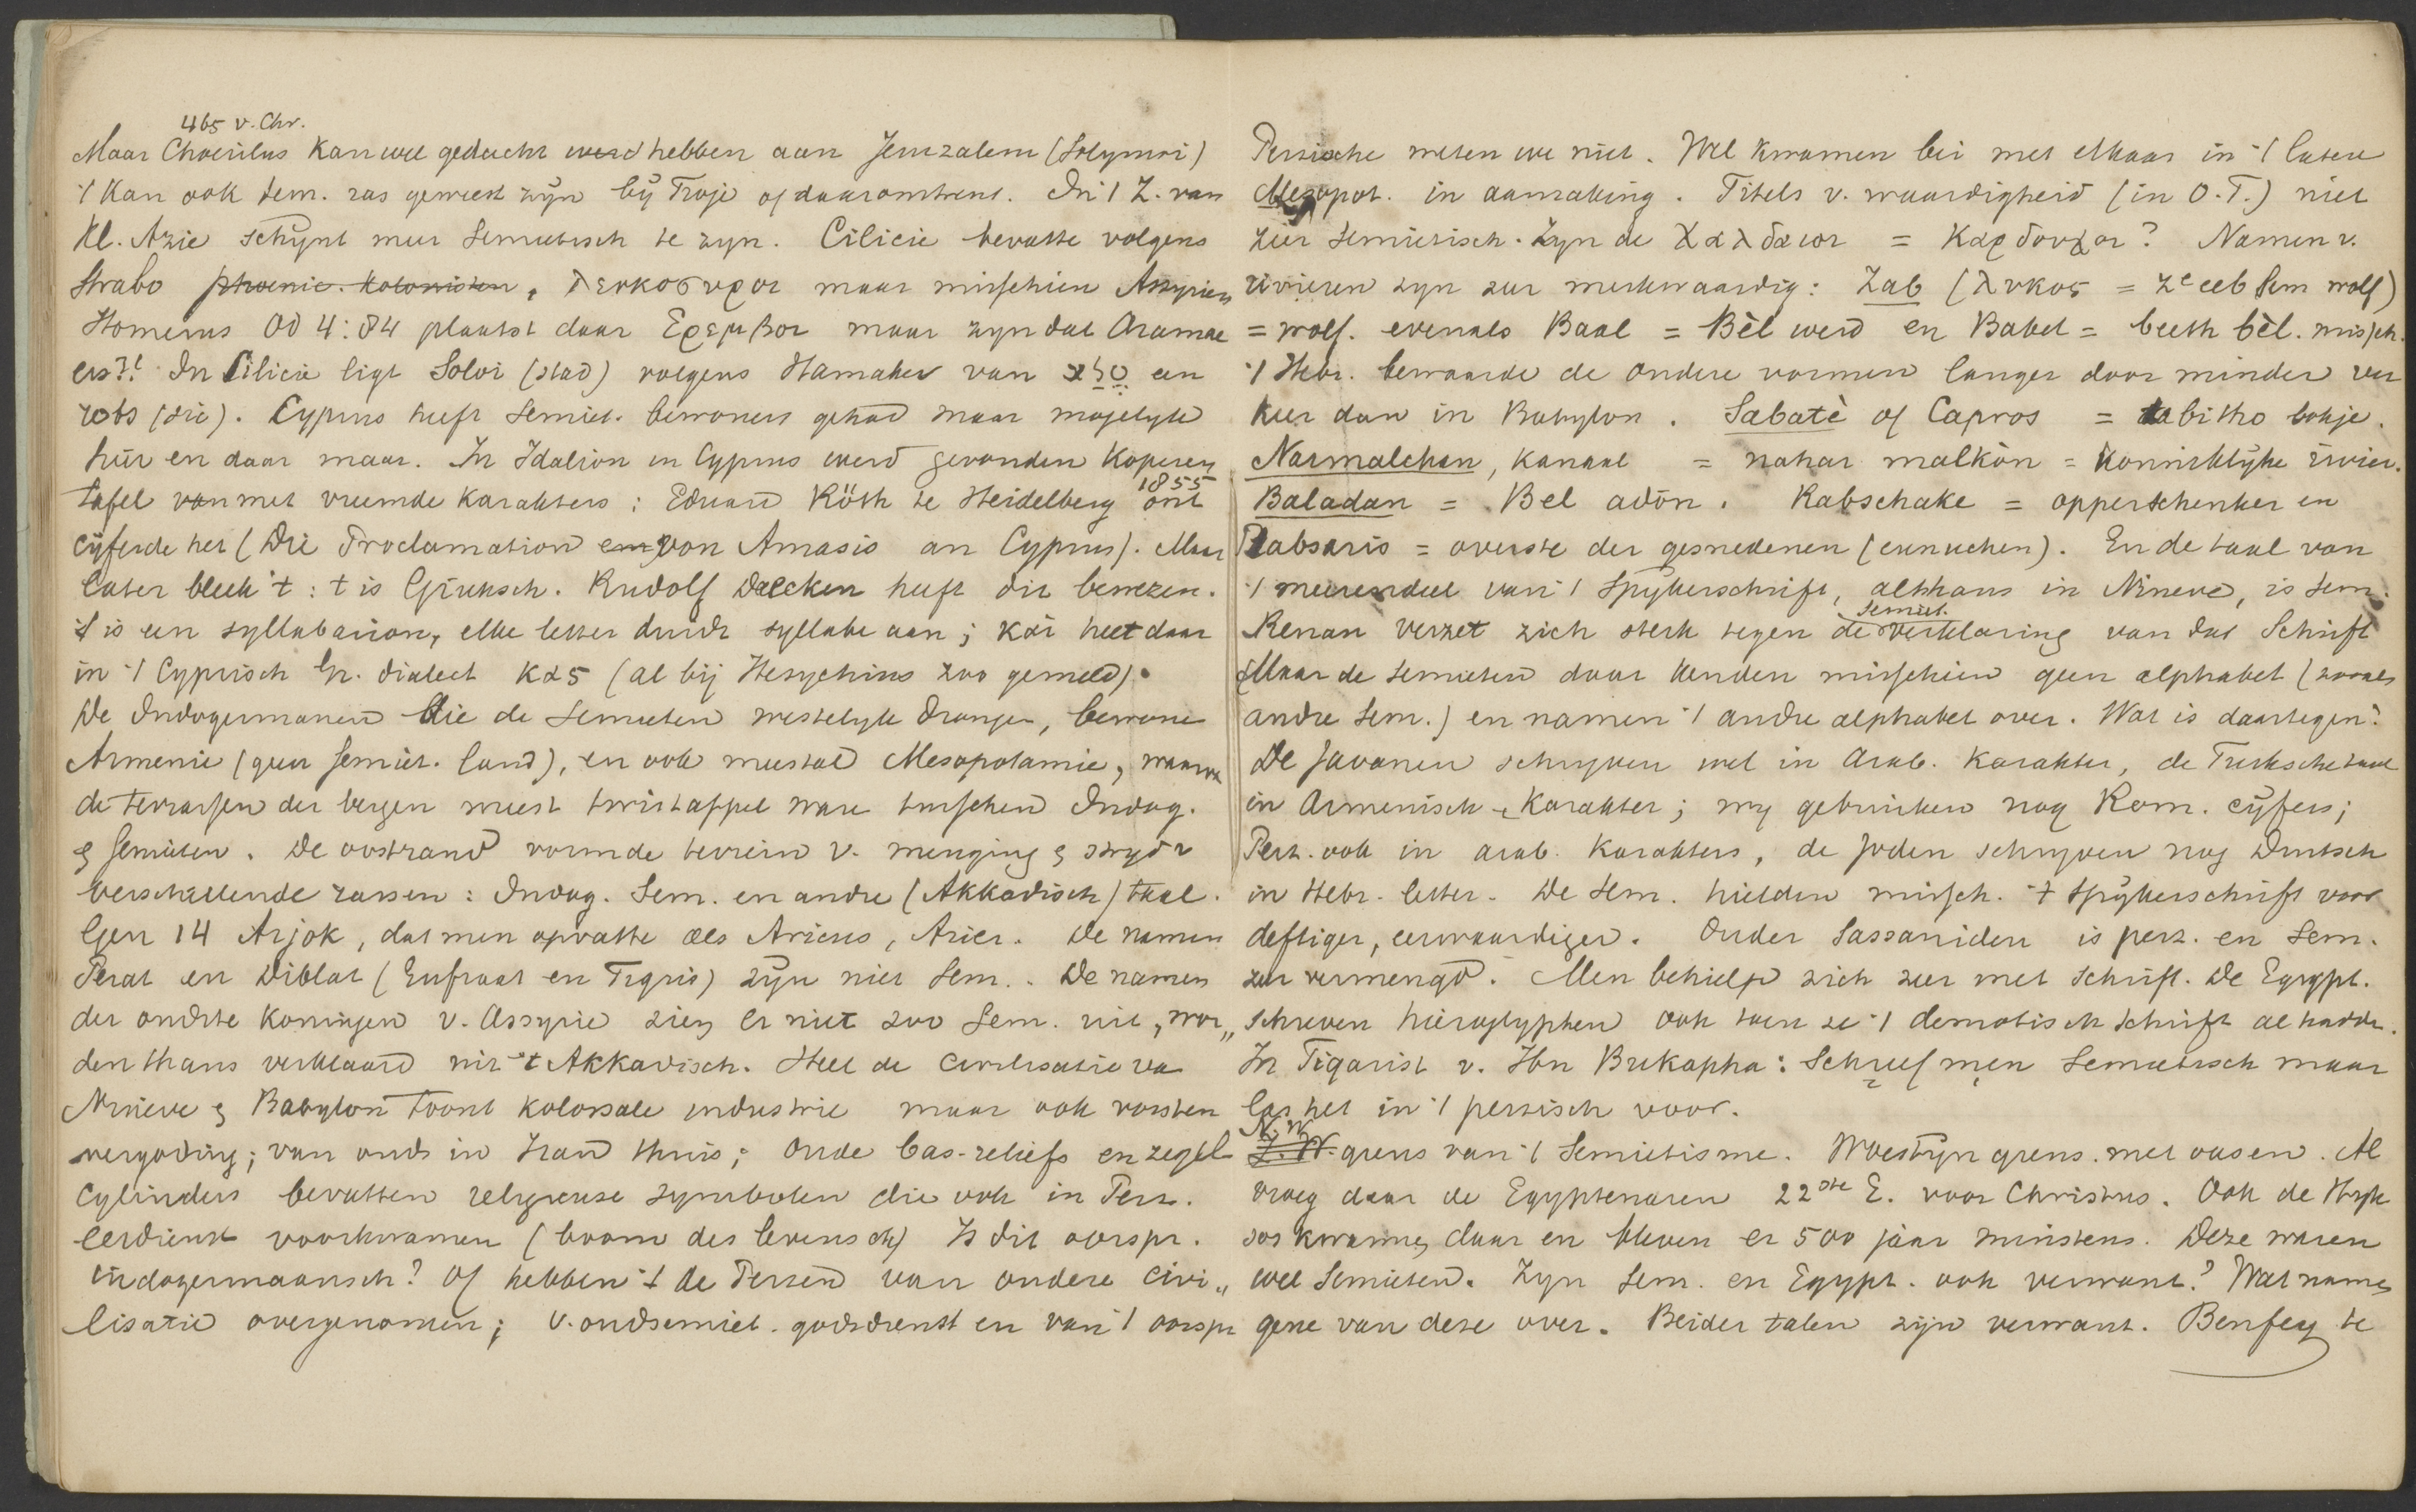 465 v. Chr.
Maar Choerilus kan wel gedacht werd hebben aan Jeruzalem (Solymoi)
't kan ook sem. ras geweest zijn bij Troje of daaromtrent. In 't Z. van
Kl. Azie schijnt meer Semietisch te zyn. Cilicie bevatte volgens
Strabo phoenic. kolonisten, λευκοσυροι maar misschien Assyriers
Homerus Od 4:84 plaatst daar Ερεμβοι maar zyn dat Aramae
ers?! In Cilicie ligt Soloi (stad) volgens Hamaker van סלע een
rots (sic). Cyprus heeft Semiet. bewoners gehad maar mogelyk
hier en daar maar. In Idalion in Cyprus werd gevonden koperen
tafel van met vreemde karakters: Eduard Röth te Heidelberg 1855 ont
cijferde het (Die Proclamation von Amasis an Cyprus). Maar
later bleek 't: t is Grieksch. Rudolf Daecken heeft dit bewezen.
't is een syllabarion, elke letter drukt syllabe aan; και heet daar
in 't Cyprisch Gr. dialect κας (al bij Hesychius zoo gemeld).
De Indogermanen die de Semieten westelyk drongen, bewone
Armenie (geen Semiet. land), en ook meestal Mesopotamie, waarva
de terrassen der bergen meest twistappel ware tusschen Indog.
& Semieten. De oostrand vormde terrein v. menging & stryd v
verschillende rassen: Indog. Sem. en andre (Akkadisch) taal.
Gen 14 Arjok, dat men opvatte als Aricus, Arier. De namen
Perat en Diklat (Eufraat en Tigris) zijn niet Sem.. De namen
der oudste koningen v. Assyrie zien er niet zoo Sem. uit, wor„
den thans verklaard uit 't Akkadisch. Heel de civilisatie va
Nineve & Babylon toont kolossale industrie maar ook vorsten
vergoding; van ouds in Iran thuis; Oude bas-reliefs en zegel
cylinders bevatten religieuse symbolen die ook in Perz.
eerdienst voorkwamen (boom des levens ch) Is dit oorspr.
indogermaansch? Of hebben 't de Perzen van oudere civi„
lisatie overgenomen; v. oudsemiet. godsdienst en van 't oorspr
Perzische weten we niet. Wel kwamen bei met elkaar in 't latere
Mesopot. in aanraking. Titels v. waardigheid (in O.T.) niet
zeer semietisch. Zyn de Χαλδαιοι = Καρδουχοι? Namen v.
rivieren zyn zeer merkwaardig: Zab (λυκος = Zᵉeeb Sem wolf)
= wolf. evenals Baal = Bèl werd en Babel = beeth bèl. missch.
't Hebr. bewaarde de oudere vormen langer door minder ver
keer dan in Babylon. Sabatè of Capros = tabitho bokje.
Narmalchan, kanaal = nahar malkôn = koninklijke rivier.
Baladan = Bel adôn. Rabschake = opperschenker en
Rabsaris = overste der gesnedenen (eunuchen). En de taal van
't meerendeel van 't Spijkerschrift, althans in Nineve, is sem.
Renan verzet zich sterk tegen de semiet. verklaring van dat Schrift
(Maar de Semieten daar kenden misschien geen alphabet (zooals
andre Sem.) en namen 't andre alphabet over. Wat is daartegen?
De Javanen schryven wel in Arab. karakter, de Turksche taal
in Armenisch karakter; wy gebruiken nog Rom. cijfers;
Perz. ook in arab. karakters, de Joden schryven nog Duitsch
in Hebr. letter. De Sem. hielden missch. 't Spijkerschrift voor
deftiger, eerwaardiger. Onder Sassaniden is perz. en Sem.
zeer vermengd. Men behielp zich zeer met Schrift. De Egypt.
schreven hieroglyphen ook toen ze 't demotisch schrift al hadde.
In Tigarist v. Ibn Bukapha: Schreef men Semietisch maar
las het in 't perzisch voor.
N.W.
Z.W. grens van 't Semietisme. Woestijn grens. met oasen. Al
vroeg daar de Egyptenaren 22ste E. voor Christus. Ook de Hyk
sos kwamen daar en bleven er 500 jaar minstens. Deze waren
wel Semieten. Zyn Sem. en Egypt. ook verwant? Wat name
gene van deze over. Beider talen zijn verwant. Benfey te